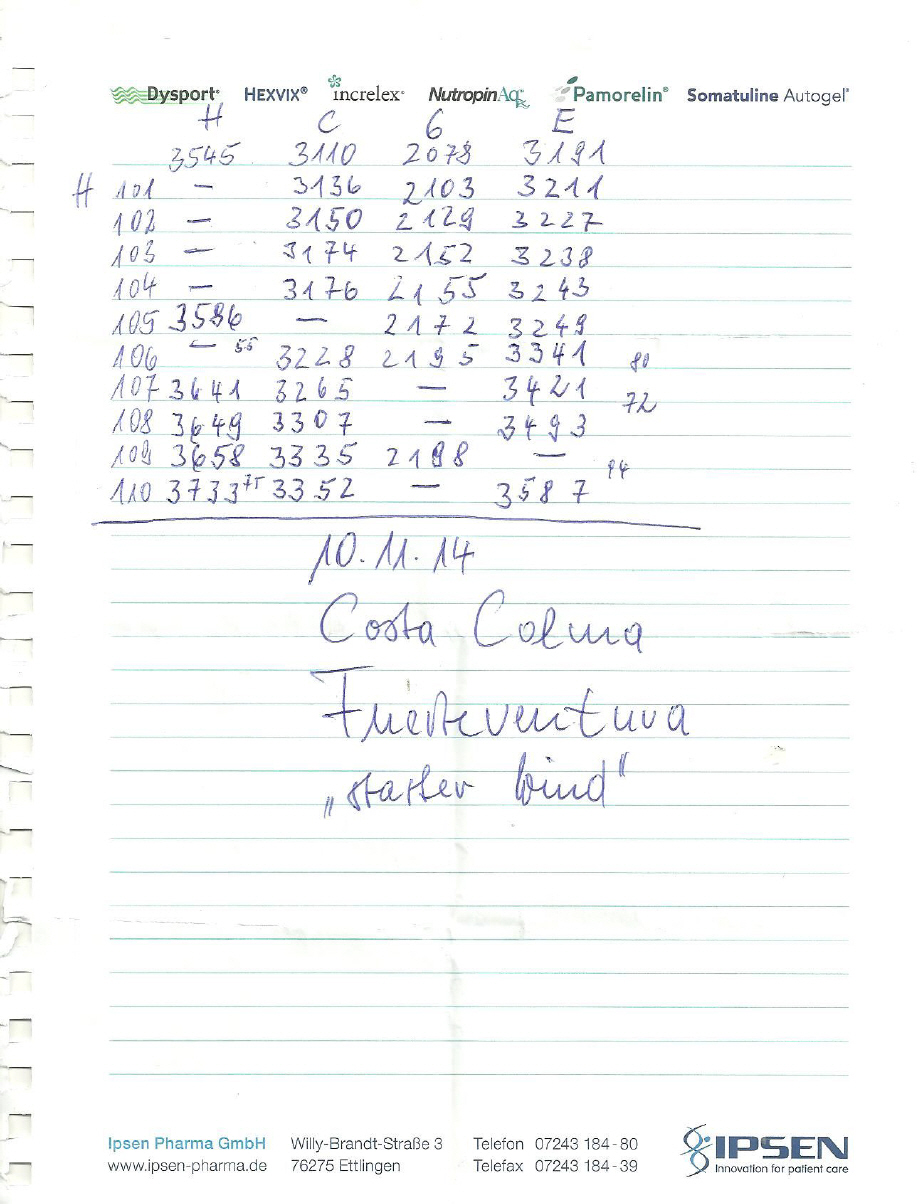 Dysport® HEXVIX® increlex® NutropinAq® Pamorelin® Somatuline Autogel®
H C G E
3545 3110 2078 3191
H 101 — 3136 2103 3211
102 — 3150 2129 3227
103 — 3174 2152 3238
104 — 3176 2155 3243
105 3586 — 2172 3249
106 — 55 3228 2195 3341 80
107 3641 3265 — 3421 72
108 3649 3307 — 3493
109 3658 3335 2198 — 94
110 3733 75 3352 — 3587
10.11.14
Costa Calma
Fuerteventura
„starker Wind"
Ipsen Pharma GmbH Willy-Brandt-Straße 3 Telefon 07243 184-80 IPSEN
www.ipsen-pharma.de 76275 Ettlingen Telefax 07243 184-39 Innovation for patient care